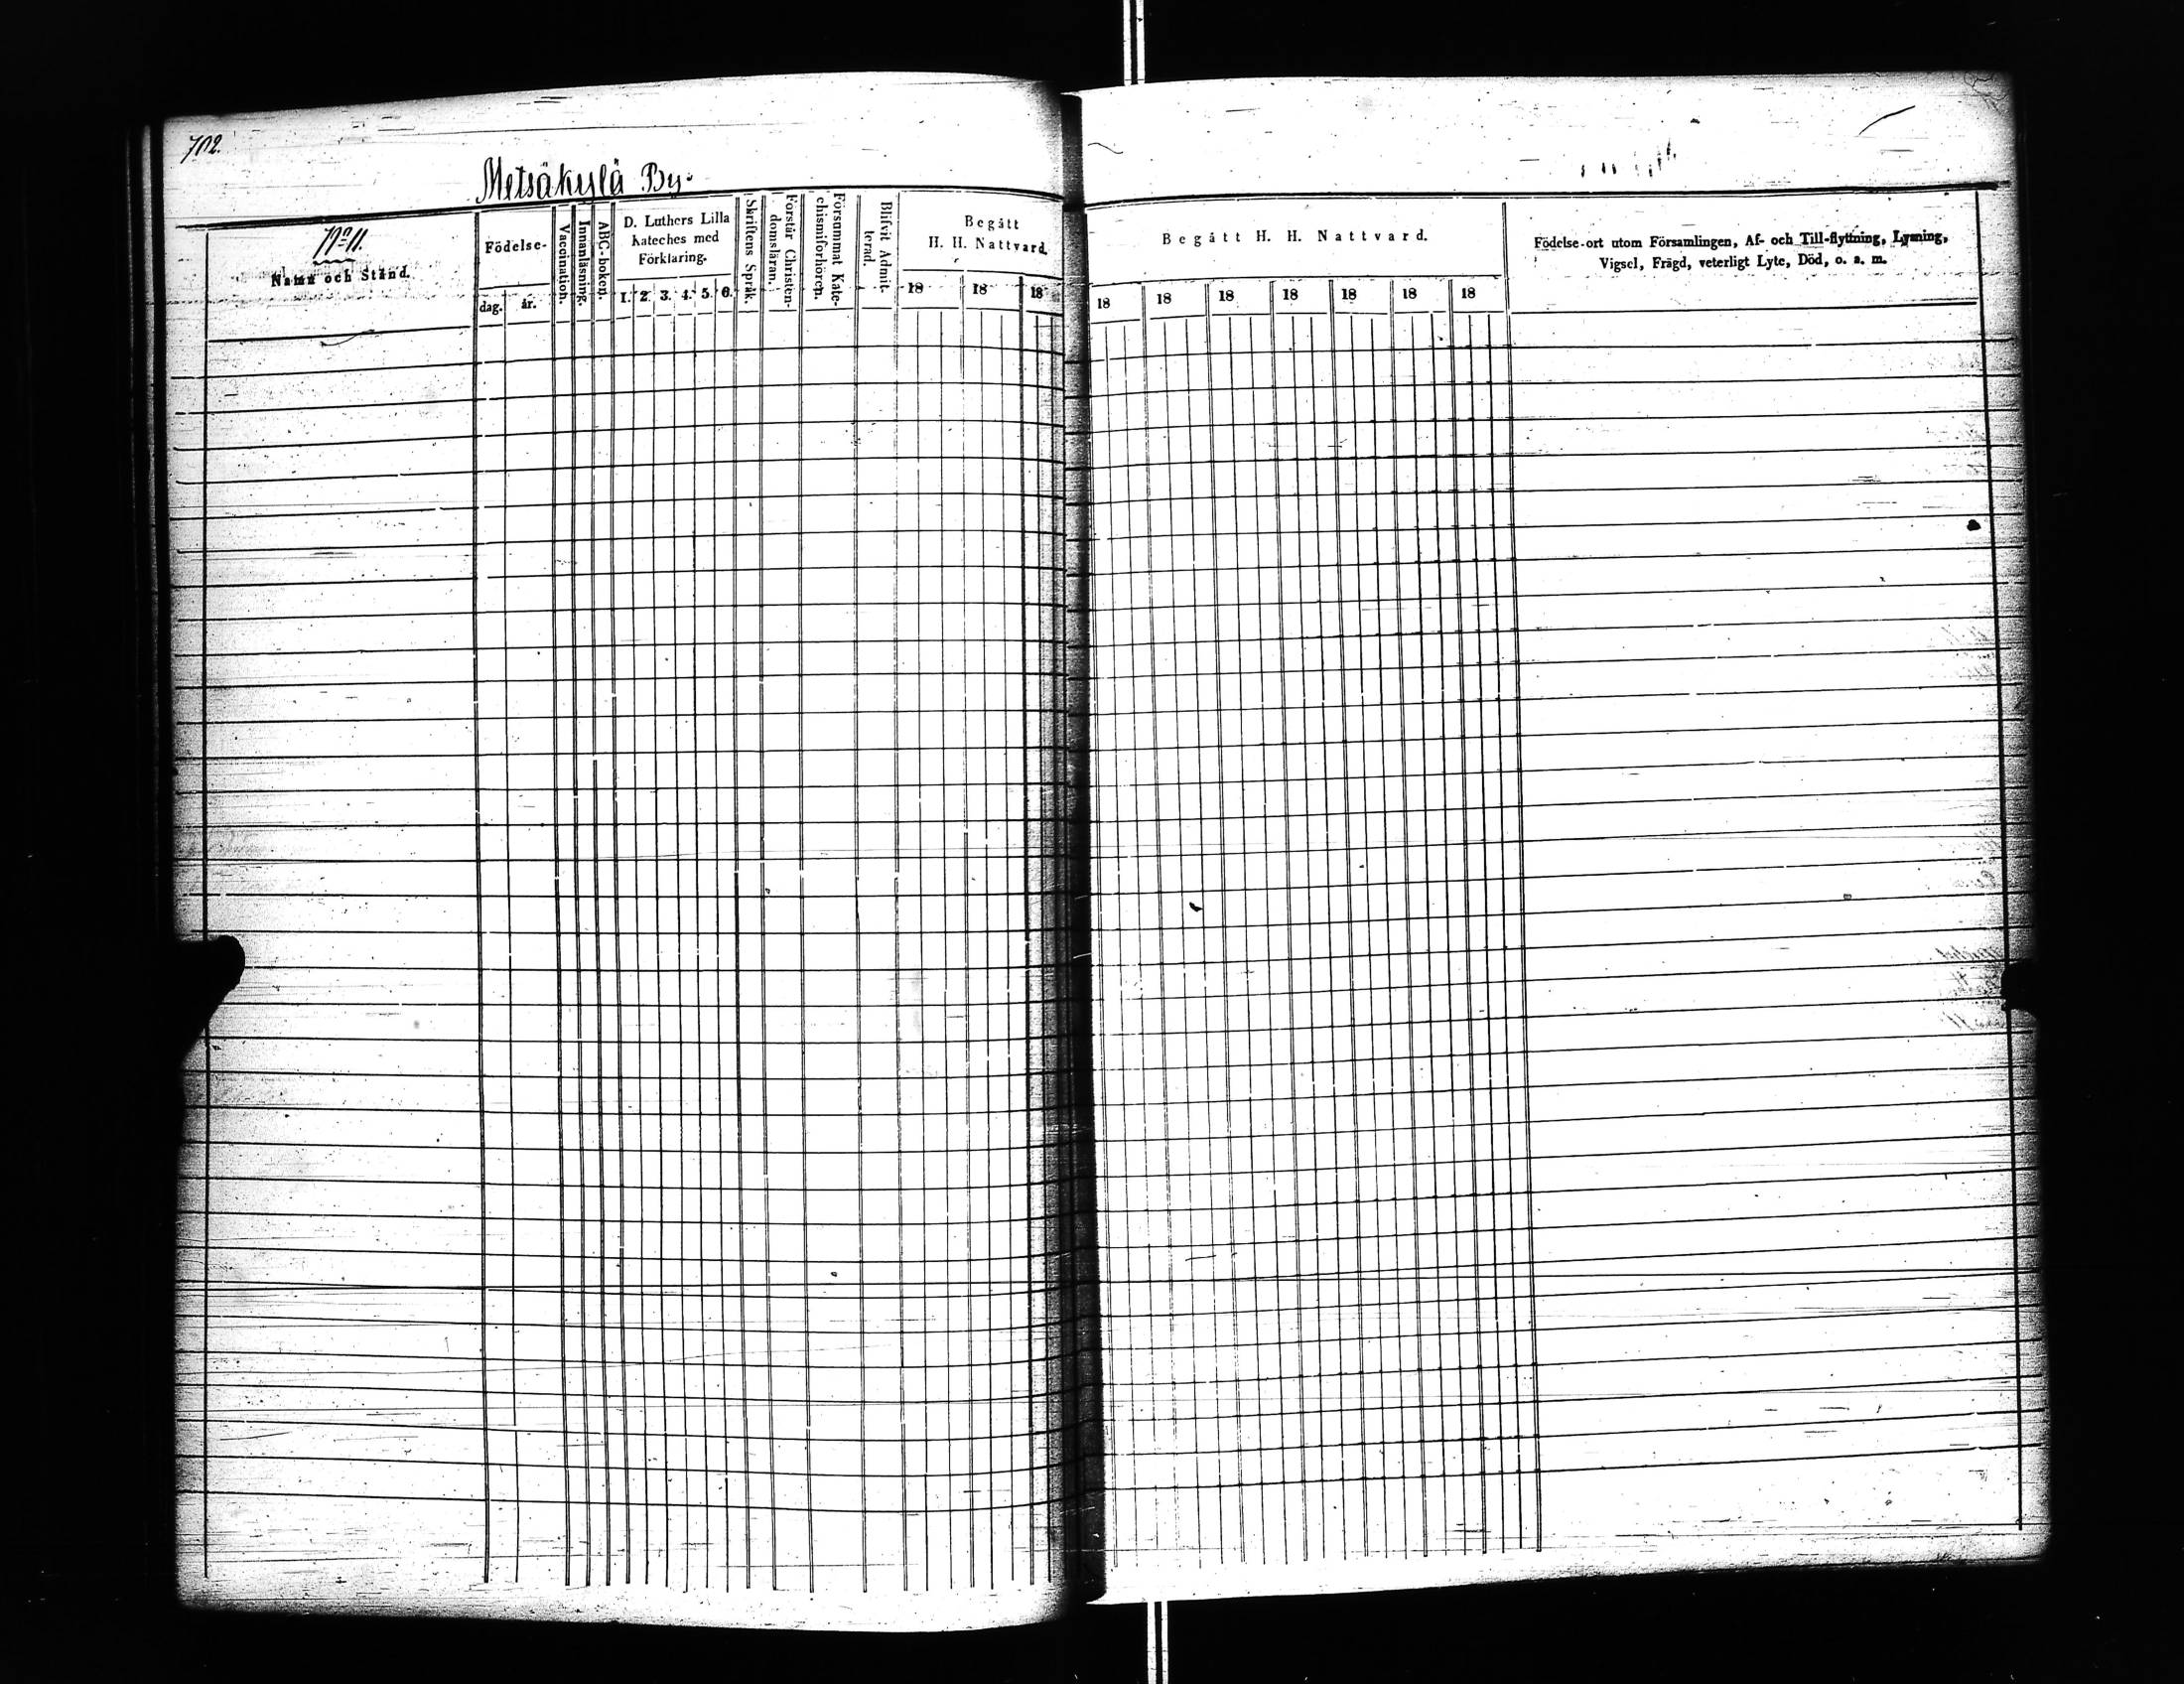 702.
Metsäkylä By.
No 11.
Namn och Stånd.
Födelse-
dag.
år.
Vaccination.
Innanläsning.
ABC-boken.
D. Luthers Lilla
Kateches med
Förklaring.
1. 2. 3. 4. 5. 6.
Skriftens Språk.
Förstår Christen-
domsläran.
Försummat Kate-
chismiförhören.
Blifvit Admit-
terad.
Begått
H. H. Nattvard.
18 18 18
Begått H. H. Nattvard.
18 18 18 18 18 18 18
Födelse-ort utom Församlingen, Af- och Till-flyttning, Lysning,
Vigsel, Frägd, veterligt Lyte, Död, o. s. m.